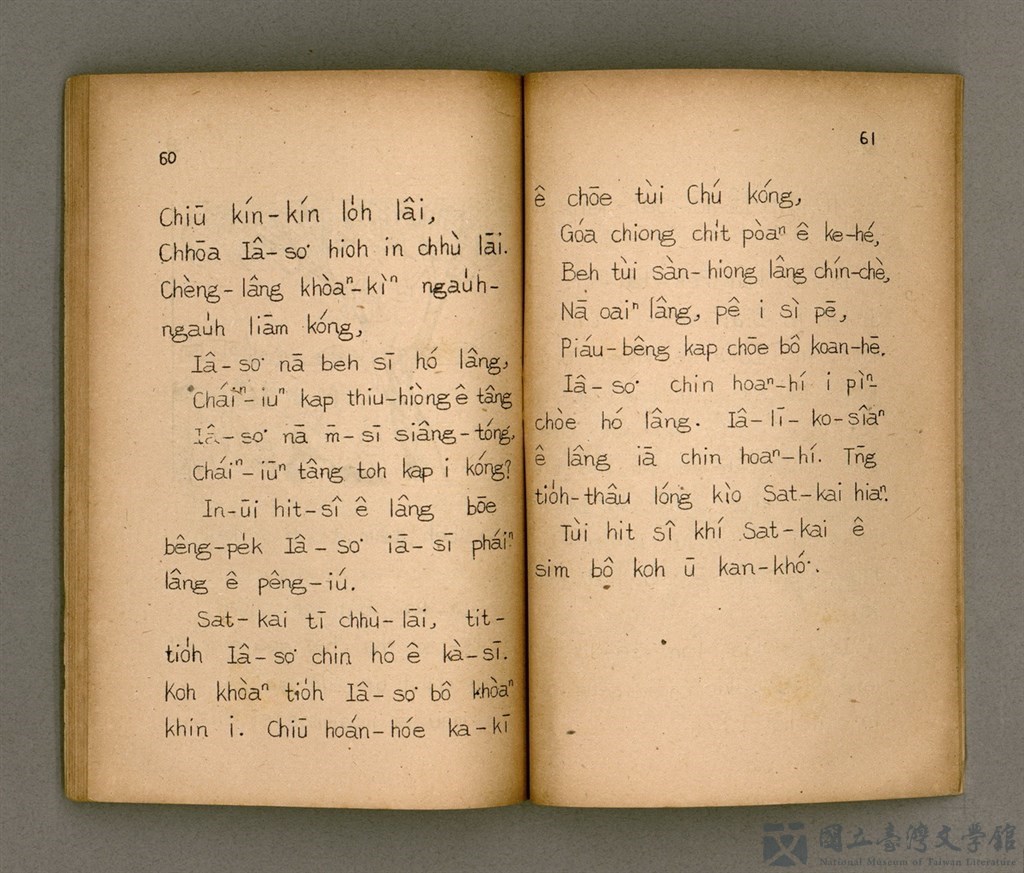 60
Chiū kín-kín lo̍h lâi,
Chhōa Iâ-so͘ hioh in chhù lāi.
Chèng-lâng khòaⁿ-kìⁿ ngau̍h-
ngau̍h liām kóng,
Iâ-so͘ nā beh sī hó lâng,
Cháiⁿ-iuⁿ kap thiu-hiòng ê tâng
Iâ-so͘ nā m̄-sī siâng-tóng,
Cháiⁿ-iūⁿ tâng toh kap i kóng?
In-ūi hit-sî ê lâng bōe
bêng-pe̍k Iâ-so͘ iā-sī pháiⁿ
lâng ê pêng-iú.
Sat-kai tī chhù-lāi, tit-
tio̍h Iâ-so͘ chin hó ê kà-sī.
Koh khòaⁿ tio̍h Iâ-so͘ bô khòaⁿ
khin i. Chiū hoán-hóe ka-kī
61
ê chōe tùi Chú kóng,
Góa chiong chi̍t pòaⁿ ê ke-hé,
Beh tùi sàn-hiong lâng chín-chè,
Nā oaiⁿ lâng, pê i sì pē,
Piáu-bêng kap chōe bô koan-hē.
Iâ-so͘ chin hoaⁿ-hí i pìⁿ-
chòe hó lâng. Iâ-lī-ko-sîaⁿ
ê lâng iā chin hoaⁿ-hí. Tn̄g
tio̍h-thâu lóng kìo Sat-kai hiaⁿ.
Tùi hit sî khí Sat-kai ê
sim bô koh ū kan-khó͘.
國立臺灣文學館
National Museum of Taiwan Literature